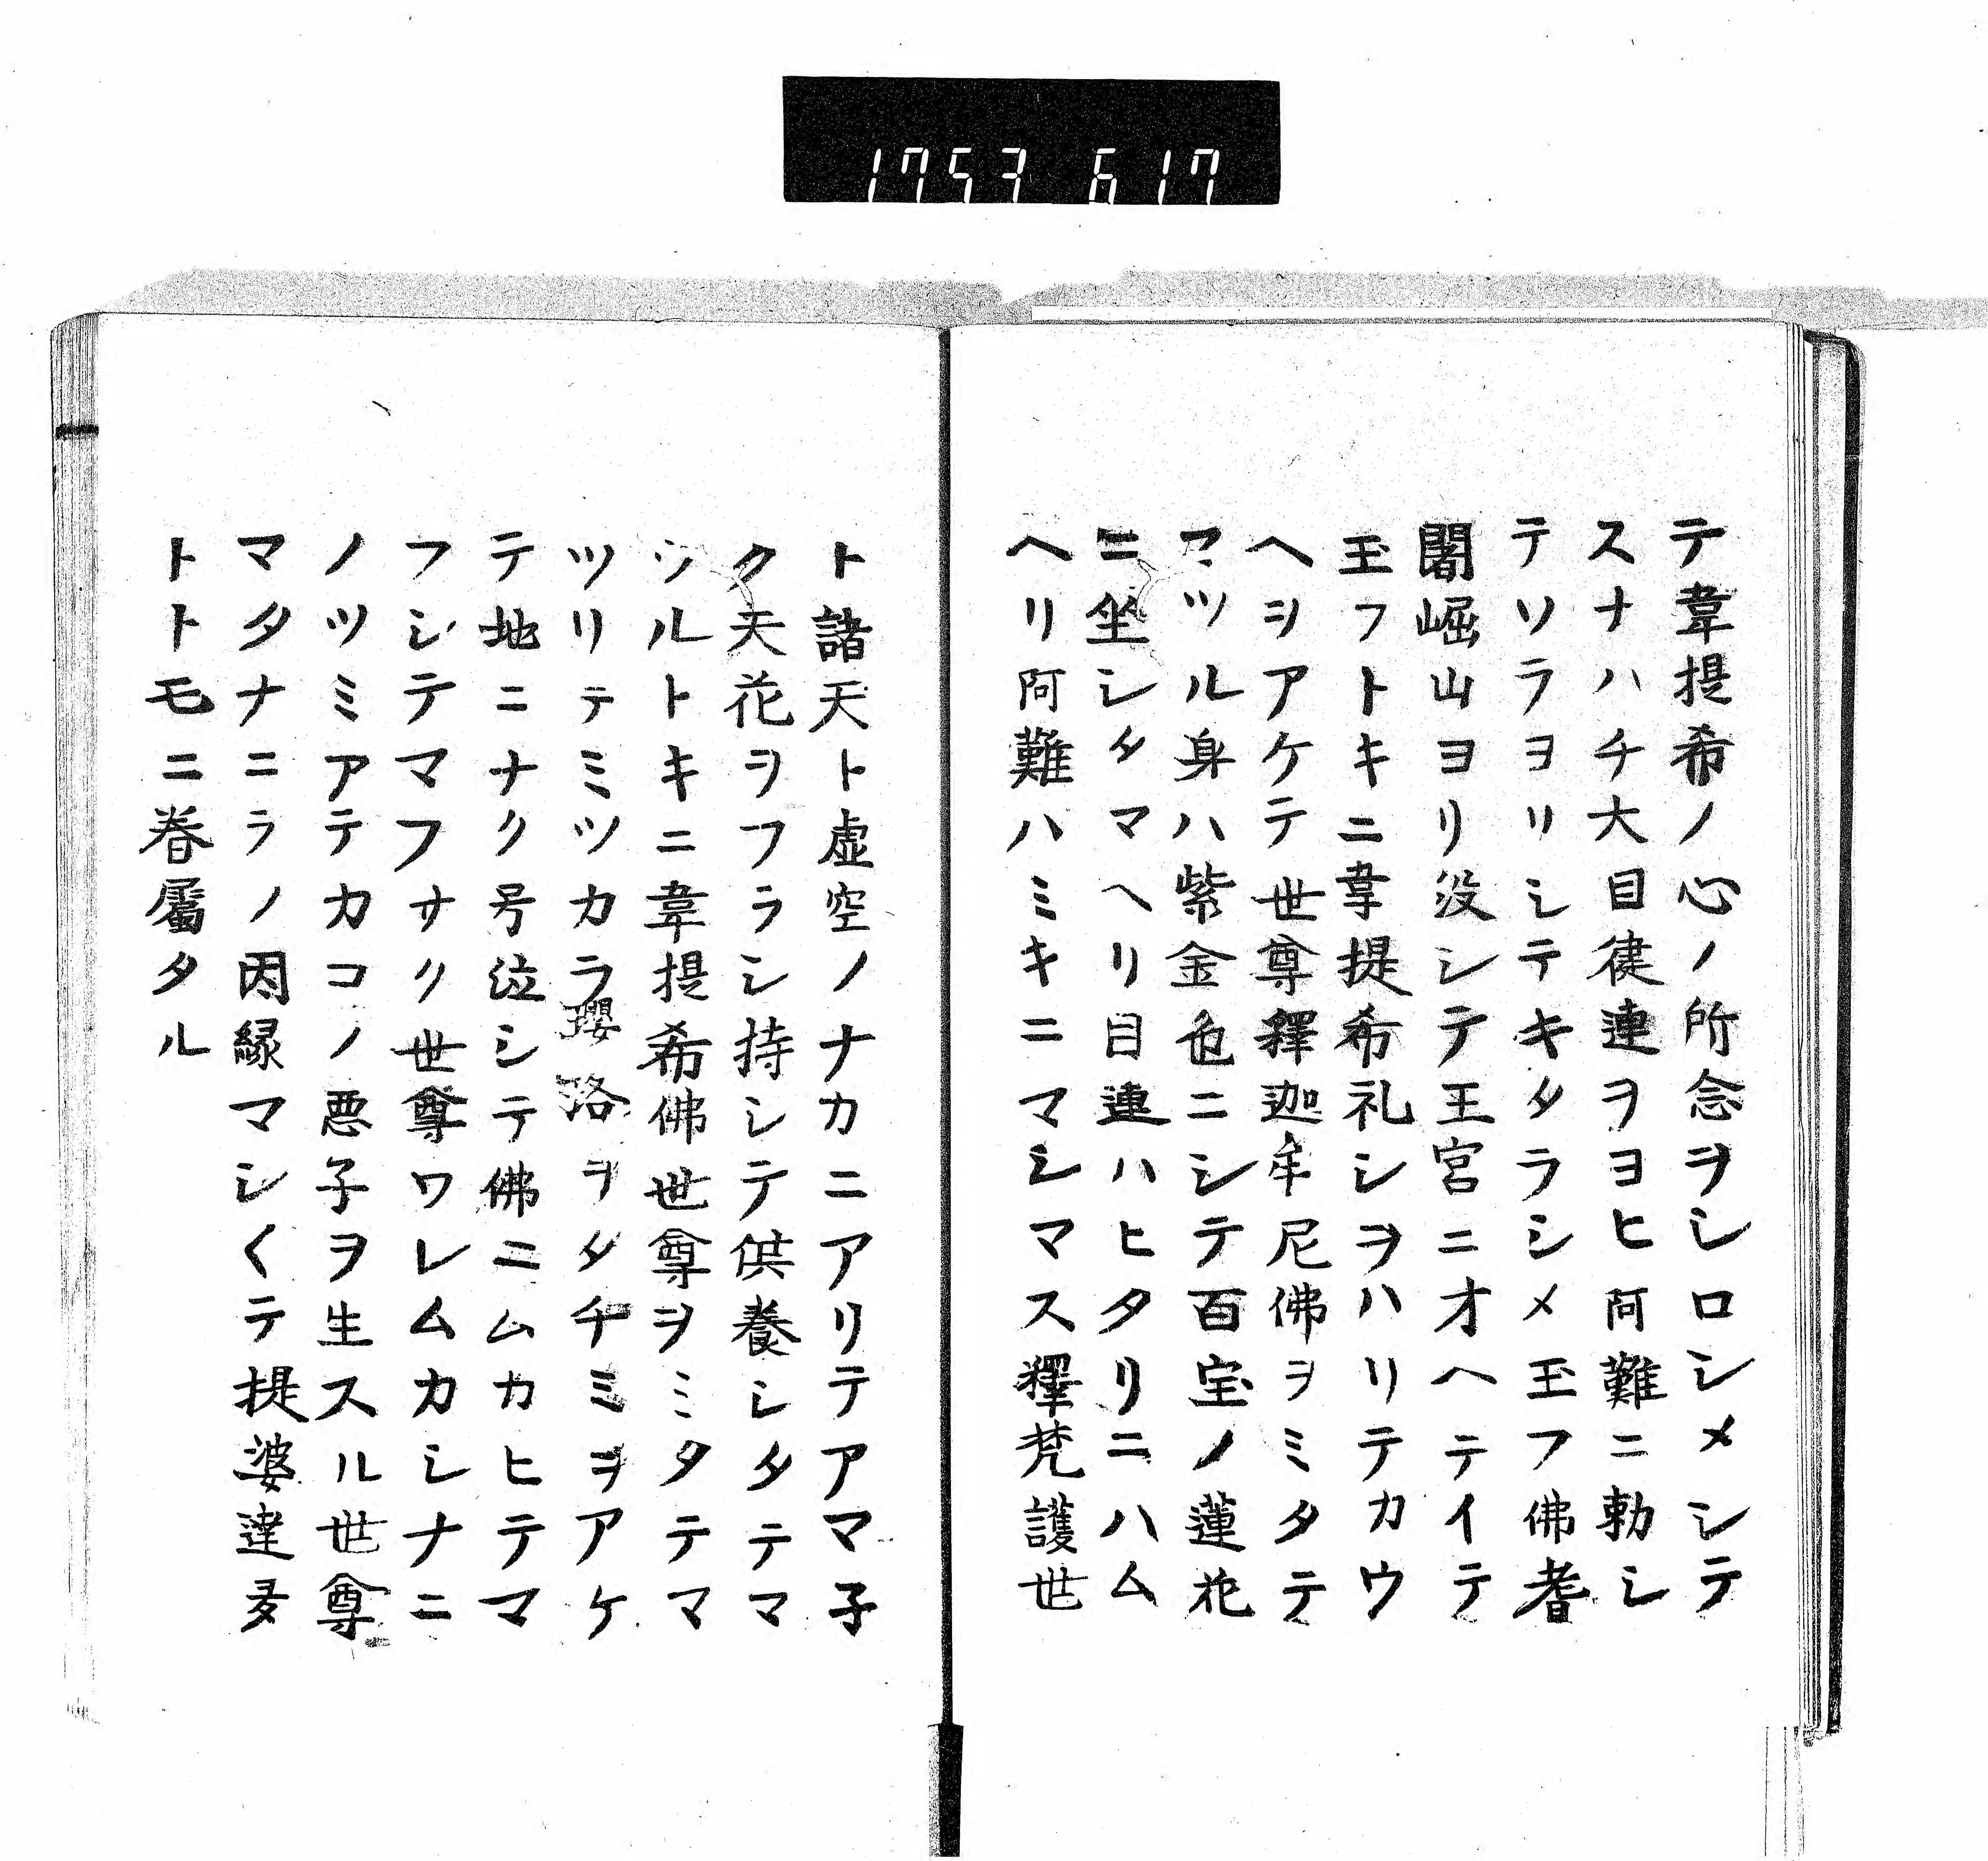 1753 617
テ韋提希ノ心ノ所念ヲシロシメシテ
スナハチ大目揵連ヲヨヒ阿難ニ勅シ
テソラヨリシテキタラシメ玉フ佛耆
闍崛山ヨリ没シテ王宮ニオヘテイテ
玉フトキニ韋提希礼シヲハリテカウ
ヘヲアケテ世尊釋迦牟尼佛ヲミタテ
マツル身ハ紫金色ニシテ百宝ノ蓮花
ニ坐シタマヘリ目連ハヒタリニハム
ヘリ阿難ハミキニマシマス釋梵護世
ト諸天ト虚空ノナカニアリテアマ子
ク天花ヲフラシ持シテ供養シタテマ
ツルトキニ韋提希佛世尊ヲミタテマ
ツリテミツカラ瓔珞ヲタチミヲアケ
テ地ニナク号泣シテ佛ニムカヒテマ
フシテマフサク世尊ワレムカシナニ
ノツミアテカコノ悪子ヲ生スル世尊
マタナニラノ因縁マシ〱テ提婆達多
トトモニ眷屬タル